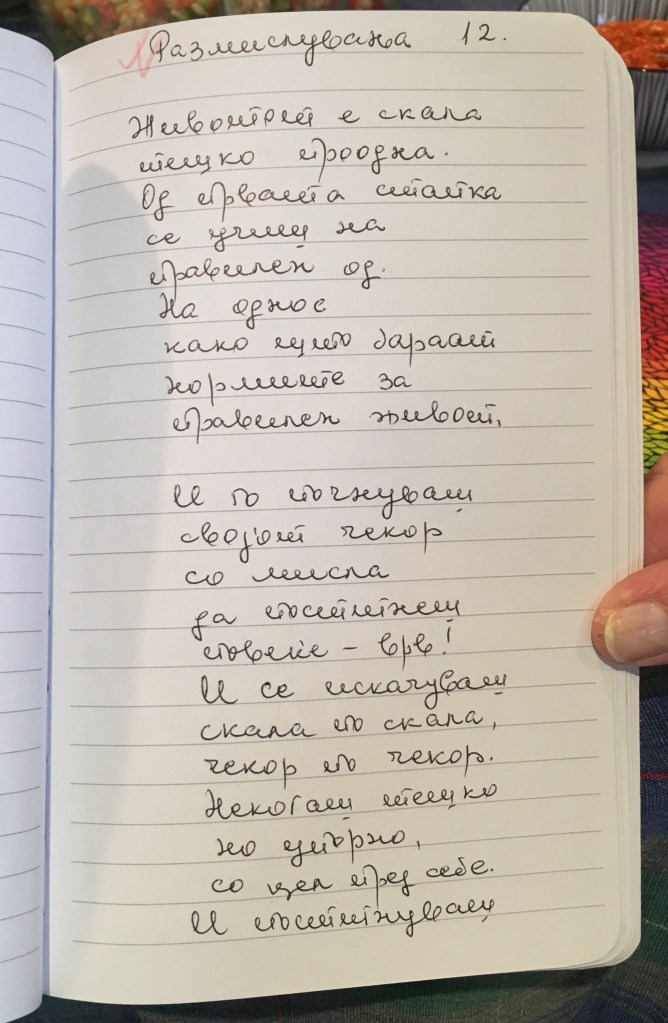 Размислувања 12.
Животот е скала
тешко проодна.
Од првата статка
се учиш на
правилен од.
На однос
како што бараат
нормите за
правилен живот,
И го почнуваш
својот чекор
со мисла
да постигнеш
повеќе - врв!
И се искачуваш
скала по скала,
чекор по чекор.
Некогаш тешко
но упорно,
со цел пред себе.
И постигнуваш